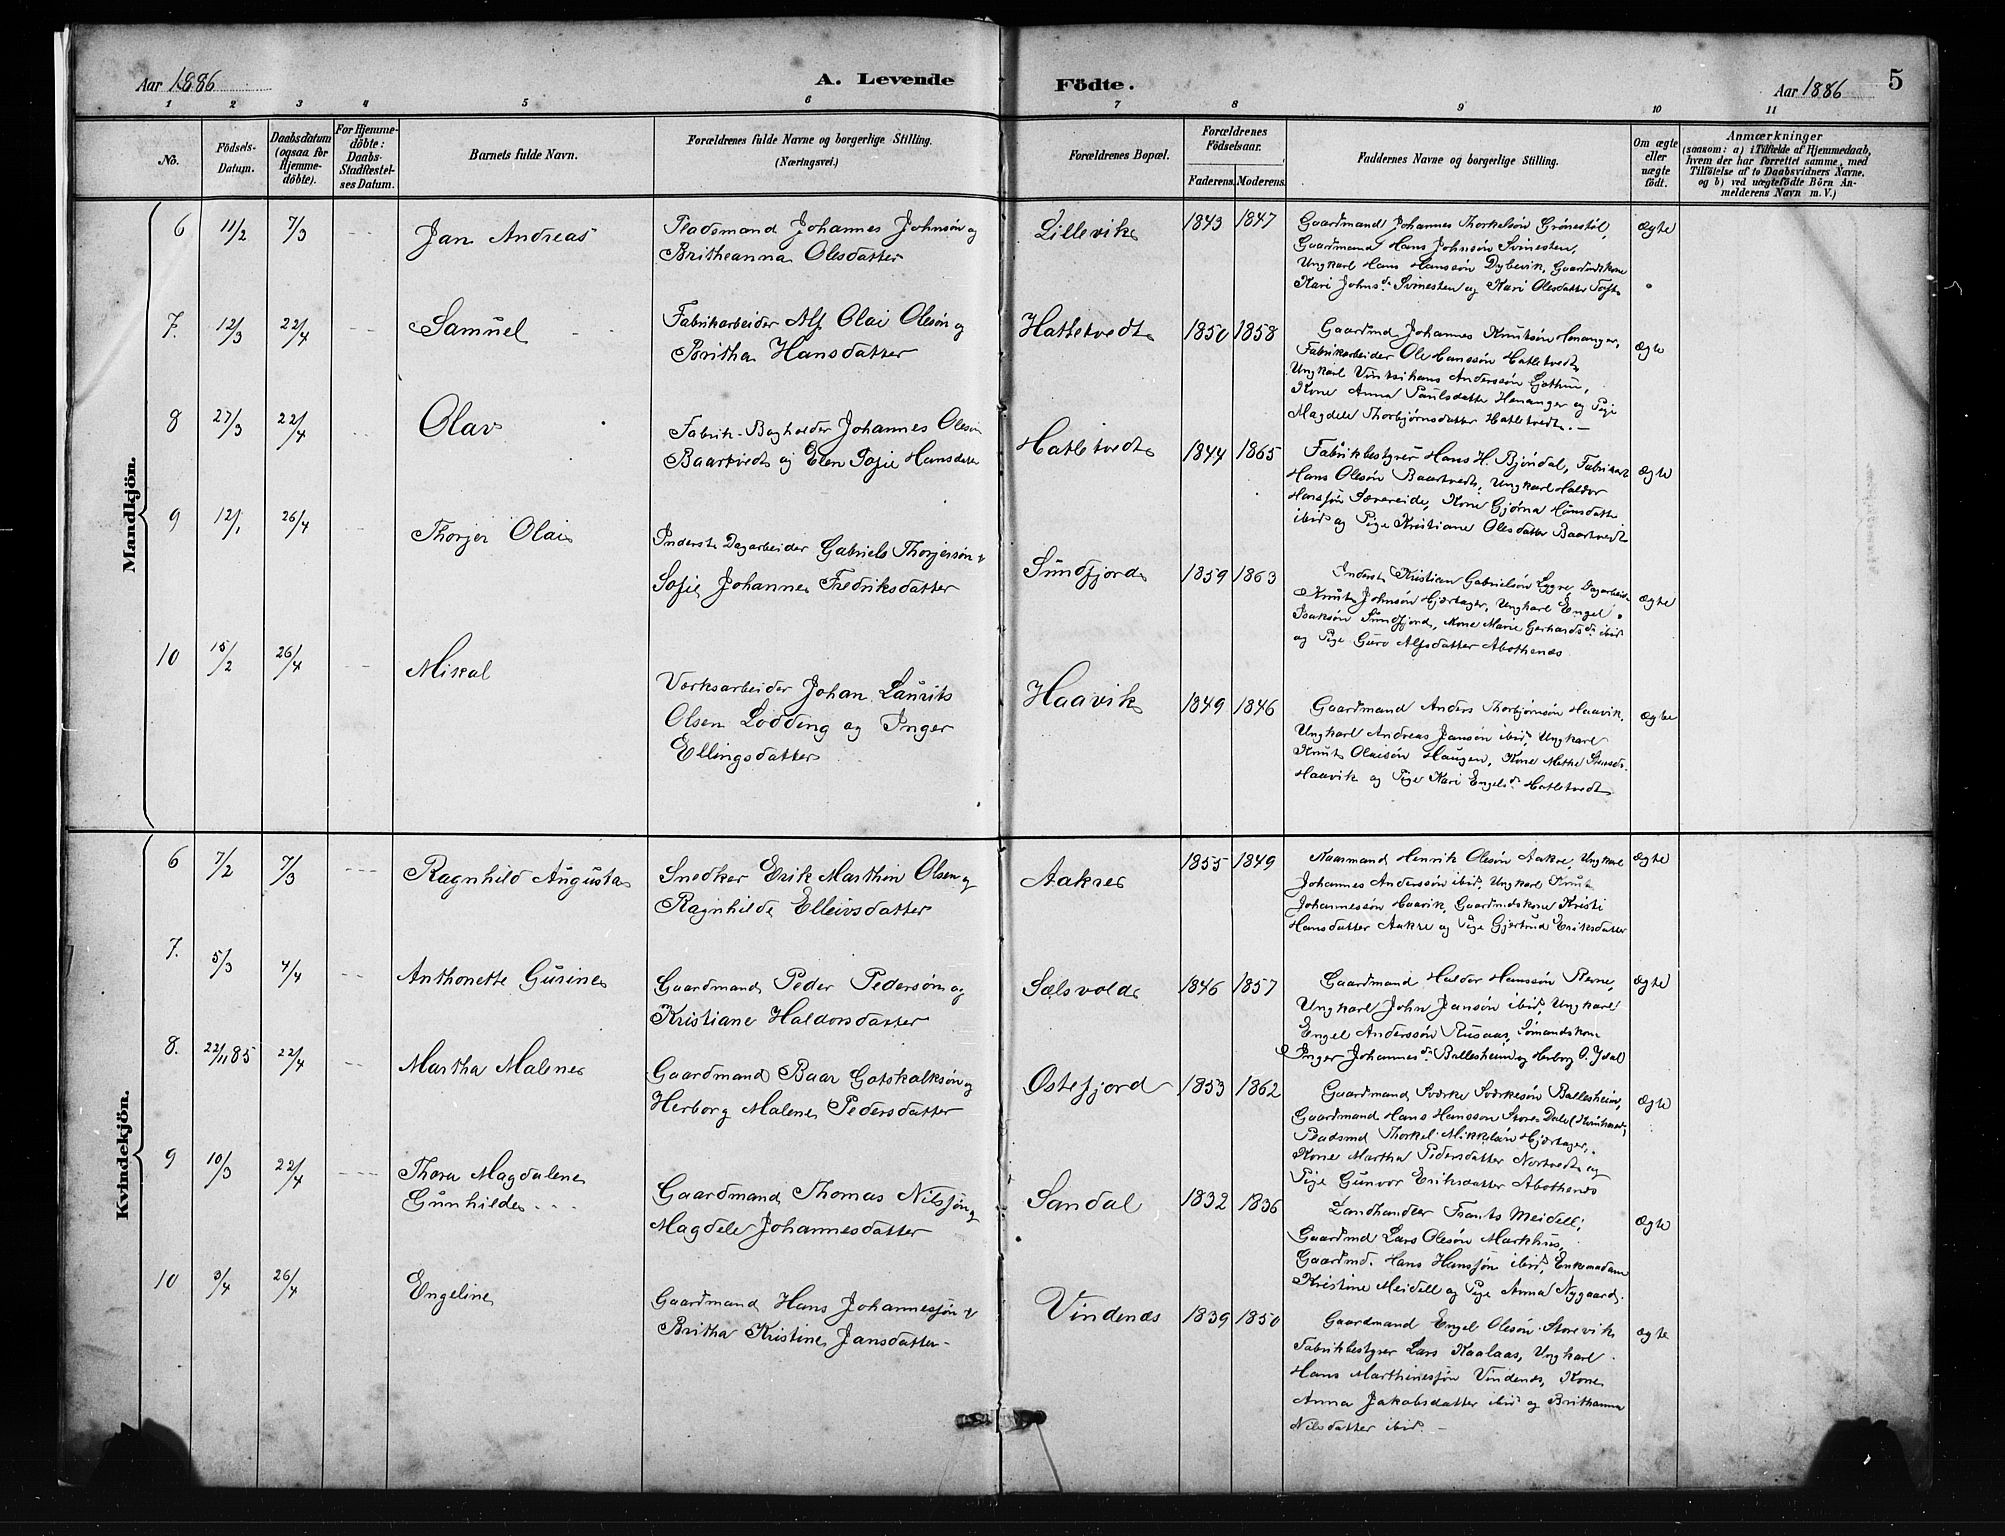 Aar 1886
A. Levende
Födte.
Aar 1886
5
1 2 3 4 5 6 7 8 9 10 11
No.
Födsels-Datum.
Daabsdatum (ogsaa for Hjemme-döbte).
For Hjemme-döbte: Daabs-Stadfæstel-ses Datum.
Barnets fulde Navn.
Forældrenes fulde Navne og borgerlige Stilling.
(Næringsvei.)
Forældrenes Bopæl.
Forældrenes Födselsaar.
Faderens. Moderens.
Faddernes Navne og borgerlige Stilling.
Om ægte eller uægte födt.
Anmærkninger
(saasom: a) i Tilfælde af Hjemmedaab,
hvem der har forrettet samme, med
Tilföielse af to Daabsvidners Navne.
og b) ved uægtefödte Börn An-
melderens Navn m. V.)
Mandkjön.
6 11/2 7/3 Jan Andreas
Pladsmand Johannes Johnsøn og
Britheanna Olesdatter
Lillevik 1843 1847
Gaardmand Johannes Thorkelsøn Grønestøl,
Gaardmand Hans Johnsøn Svinesten,
Ungkarl Hans Hanssøn Dybevik, Gaardmdskone
Kari Johnsdr. Svinesten og Kari Olesdatter Toft
Ægte
7. 12/3 22/4 Samuel
Fabrikarbeider Alf Olai Olesøn og
Britha Hansdatter
Hatletvedt 1850 1858
Gaardmd Johannes Knutsøn Henanger,
Fabrikarbeider Ole Hanssøn Hatletvedt,
Ungkarl Anderssøn
Kone Anna Paulsdatter Henanger og Pige
Magdele Thorbjørnsdatter Hatletvedt.
Ægte
8 27/3 22/4 Olav
Fabrik-Bogholder Johannes Olesøn
Baartvedt og Elen Sofie Hansdatter
Hatletvedt 1844 1865
Fabrikbestyrer Hans H. Bjøndal,
Hans Olesøn Baartvedt, Ungkarl Haldor
Hanssøn Sævereide, Kone Gjørna Hansdatter
ibid og Pige Kristiane Olesdatter Baartvedt
Ægte
9 12/1 26/4 Thorjer Olai
Inderst Dagarbeider Gabriel Thorjersøn &
Sofie Johanne Fredriksdatter
Sundfjord 1859 1863
Inderst Kristian Gabrielsøn Eggre, Dagarbeid.
Knut Johnsøn Hjærtager, Ungkarl Engel
Isaksøn Sundfjord, Kone Marie Gerhardsdr. ibid
og Pige Guro Alfsdatter Abothenæs
Ægte
10 15/2 26/4 Mikal
Værksarbeider Johan Laurits
Olsen Lodding og Inger
Ellingsdatter
Haavik 1849 1846
Gaardmand Anders Thorbjørnsøn Haavik,
Ungkarl Andreas Jansøn ibid, Ungkarl
Knut Olaisøn Haugen, Kone Mette Stensdr.
Haavik og Pige Kari Engelsdr. Hatletvedt
Ægte
Kvindekjön.
6 7/2 7/3 Ragnhild Augusta
Snedker Erik Marthin Olsen og
Ragnhilde Elleivsdatter
Aakre 1855 1849
Kaarmand Henrik Olesøn Aakre, Ungkarl
Johannes Anderssøn ibid, Ungkarl Knut
Johannessøn Haavik, Gaardmdskone Kristi
Hansdatter Aakre og Pige Gjertrud Eriksdatter
Ægte
7. 5/3 4/4 Anthonette Gurine
Gaardmand Peder Pedersøn og
Kristiane Haldorsdatter
Sælsvold 1846 1857
Gaardmand Haldor Hanssøn Revne,
Ungkarl John Jansøn ibid, Ungkarl
Engel Anderssøn Rusaas, Sømandskone
Inger Johannesdr. Ballesheim og Herborg O. Ydal
Ægte
8. 22/11 85 22/4 Martha Malene
Gaardmand Baar Gotskalksøn og
Herborg Malene Pedersdatter
Østefjord 1853 1862
Gaardmand Sværke Sværkesøn Ballesheim,
Gaardmand Hans Hansson Store-Dale
Pladsmd Thorkel Mikkelsøn Hjærtager,
Kone Martha Pedersdatter Nortvedt og
Pige Gunvor Eriksdatter Abothenæs
Ægte
9 10/3 22/4 Thora Magdalene
Gunhilde
Gaardmand Thomas Nilssøn og
Magdele Johannesdatter
Sandal 1832 1836
Landhandler Frants Meidell,
Gaardmd Lars Olesøn Markhus,
Gaardmd. Hans Hanssøn ibid, Enkemadam
Kristine Meidell og Pige Anna Nygaard.
Ægte
10 3/4 26/4 Engeline
Gaardmand Hans Johannessøn &
Britha Kristine Jansdatter
Vindenæs 1839 1850
Gaardmand Engel Olesøn Storevik
Fabrikbestyrer Lars Kaalaas, Ungkarl
Hans Marthinessøn Vindenæs, Kone
Anna Jakobsdatter ibid og Brithanna
Nilsdatter ibid.
Ægte